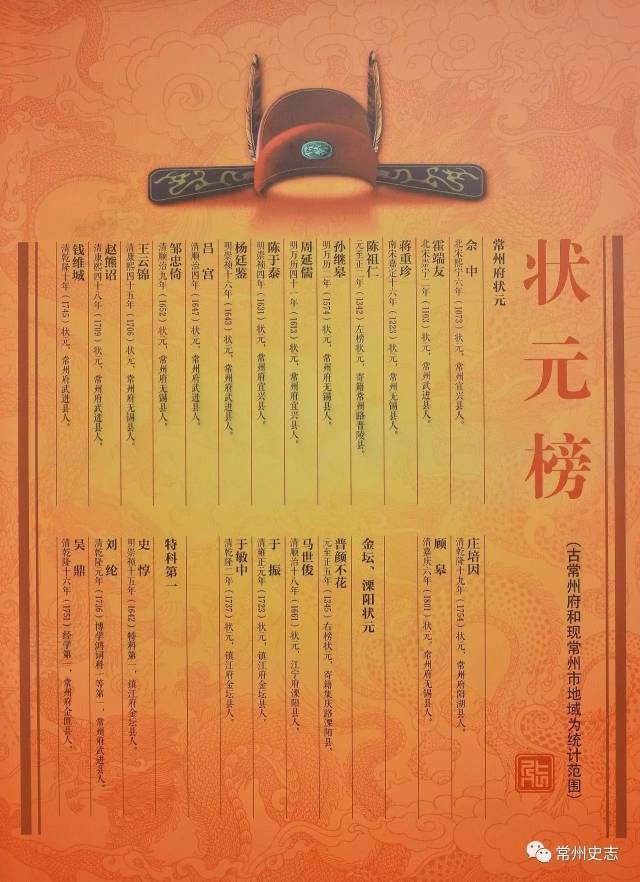 状元榜
（古常州府和现常州市地域为统计范围）
常州府状元
佘 中
北宋熙宁六年（1073）状元，常州宜兴县人。
霍端友
北宋崇宁二年（1103）状元，常州武进县人。
蒋重珍
南宋嘉定十六年（1223）状元，常州无锡县人。
陈祖仁
元至正二年（1342）左榜状元，寄籍常州路晋陵县。
孙继皋
明万历二年（1574）状元，常州府无锡县人。
周延儒
明万历四十一年（1613）状元，常州府宜兴县人。
陈于泰
明崇祯四年（1631）状元，常州府宜兴县人。
杨廷鉴
明崇祯十六年（1643）状元，常州府武进县人。
吕 宫
清顺治四年（1647）状元，常州府武进县人。
邹忠倚
清顺治九年（1652）状元，常州府无锡县人。
王云锦
清康熙四十五年（1706）状元，常州府无锡县人。
赵熊诏
清康熙四十八年（1709）状元，常州府武进县人。
钱维城
清乾隆十年（1745）状元，常州府武进县人。
庄培因
清乾隆十九年（1754）状元，常州府阳湖县人。
顾 皋
清嘉庆六年（1801）状元，常州府无锡县人。
金坛、溧阳状元
普颜不花
元至正五年（1345）右榜状元，寄籍集庆路溧阳县。
马世俊
清顺治十八年（1661）状元，江宁府溧阳县人。
于 振
清雍正元年（1723）状元，镇江府金坛县人。
于敏中
清乾隆二年（1737）状元，镇江府金坛县人。
特科第一
史 惇
明崇祯十五年（1642）特科第一，镇江府金坛县人。
刘 纶
清乾隆元年（1736）博学鸿词科一等第一，常州府武进县人。
吴 鼎
清乾隆十六年（1751）经学第一，常州府金匮县人。
常州史志